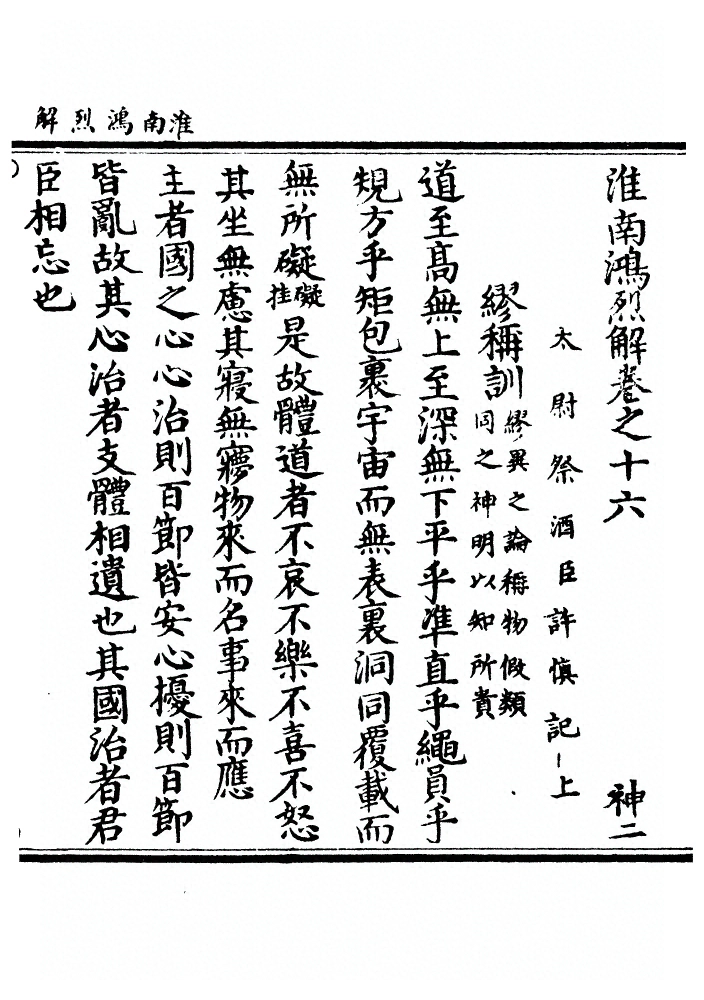 淮南鴻烈解
淮南鴻烈解卷之十六 神二
太尉祭酒臣許慎記上
繆稱訓 繆異之論稱物假類同之神明以知所貴
道至高無上至深無下平乎準直乎繩員乎
規方乎矩包裹宇宙而無表裏洞同覆載而
無所礙 礙挂 是故體道者不哀不樂不喜不怒
其坐無慮其寢無夢物來而名事來而應
主者國之心心治則百節皆安心擾則百節
皆亂故其心治者支體相遺也其國治者君
臣相忘也